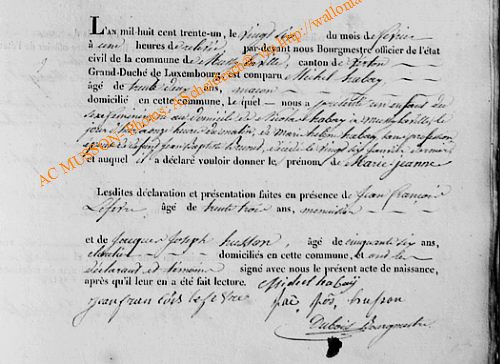 L'AN mil huit cent trente-un, le vingt du mois de février
à une heures de relevée par-devant nous Bourgmestre officier de l'état
civil de la commune de canton de
Grand-Duché de Luxembourg, est comparu Michel habay
âgé de trente deux ans, maçon
domicilié en cette commune, le quel — nous a présenté un enfant du
sexe féminin né au domicile de habay à
jour à onze heures du matin, de Marie habay sans profession
baptiste décédé le vingt janvier dernier
et auquel il a déclaré vouloir donner le prénom de Marie jeanne
Lesdites déclaration et présentation faites en présence de jean françois
Lefèvre, âgé de trente trois ans, menuisier
et de jacques joseph husson, âgé de cinquante six ans,
domiciliés en cette commune, et ont les
déclarant et témoins signé avec nous le présent acte de naissance,
après qu'il leur en a été fait lecture. Michel habaÿ
jean fran çois lefevre jac jos husson
Dubois Bourgmestre
AC MUSSON- Photos: ArchGenGaum http://wallonia